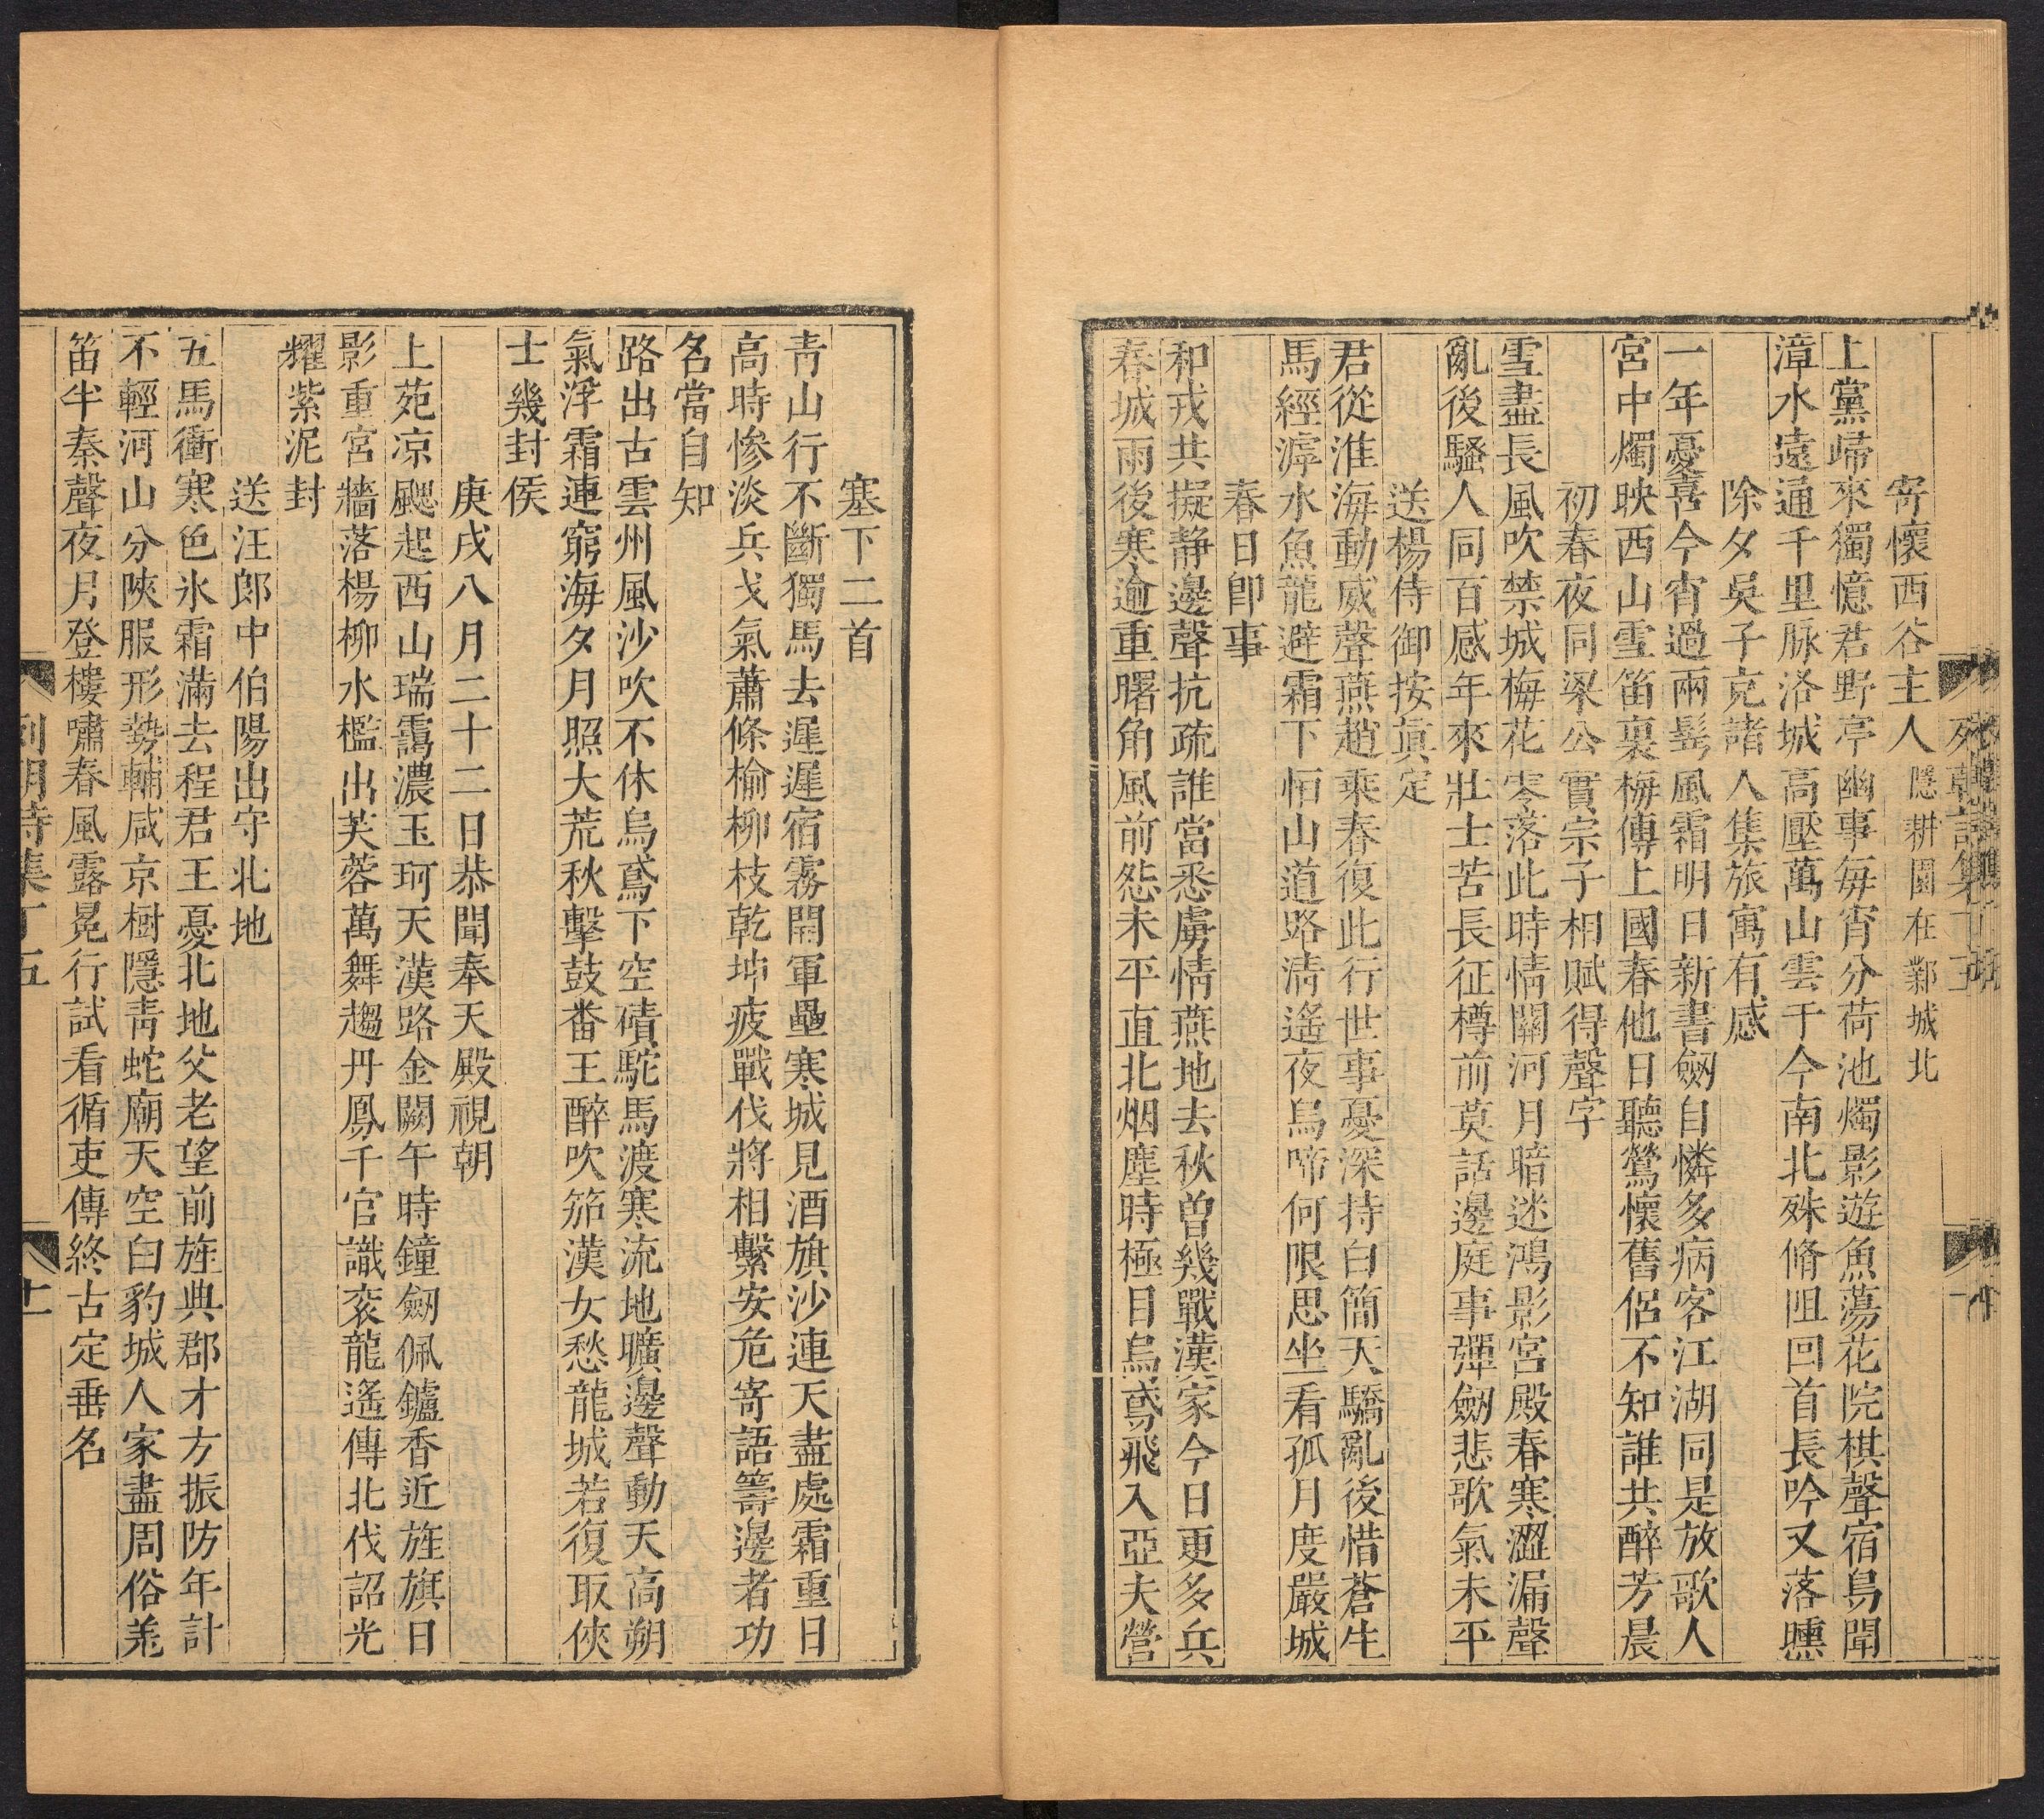 寄懷西谷主人隱耕園在鄴城北
上黨歸來獨憶君野亭幽事每宵分荷池燭影遊魚蕩花院棋聲宿鳥聞
漳水遠通千里脉洛城高壓萬山雲于今南北殊脩阻回首長吟又落曛
除夕吳子克諸人集旅寓有感
一年憂喜今宵過兩髩風霜明日新書劒自憐多病客江湖同是放歌人
宮中燭映西山雪笛裏梅傳上國春他日聽鶯懷舊侶不知誰共醉芳晨
初春夜同梁公實宗子相賦得聲字
雪盡長風吹禁城梅花零落此時情關河月暗迷鴻影宮殿春寒澀漏聲
亂後騷人同百感年來壯士苦長征樽前莫話邊庭事彈劒悲歌氣未平
送楊侍御按眞定
君從淮海動威聲燕趙乘春復此行世事憂深持白簡天驕亂後惜蒼生
馬經滹水魚龍避霜下恒山道路清遙夜烏啼何限思坐看孤月度嚴城
春日卽事
和戎共擬靜邊聲抗疏誰當悉虜情燕地去秋曾幾戰漢家今日更多兵
春城雨後寒逾重曙角風前怨未平直北烟塵時極目烏鳶飛入亞夫營
塞下二首
靑山行不斷獨馬去遲遲宿霧開軍壘寒城見酒旗沙連天盡處霜重日
高時慘淡兵戈氣蕭條榆柳枝乾坤疲戰伐將相繫安危寄語籌邊者功
名當自知
路出古雲州風沙吹不休烏鳶下空磧駝馬渡寒流地曠邊聲動天高朔
氣浮霜連窮海夕月照大荒秋擊鼓番王醉吹笳漢女愁龍城若復取俠
士幾封侯
庚戌八月二十二日恭聞奉天殿視朝
上苑凉颸起西山瑞靄濃玉珂天漢路金闕午時鐘劒佩鑪香近旌旗日
影重宮牆落楊柳水檻出芙蓉萬舞趨丹鳳千官識袞龍遙傳北伐詔光
耀紫泥封
送汪郎中伯陽出守北地
五馬衝寒色氷霜滿去程君王憂北地父老望前旌典郡才方振防年計
不輕河山分陜服形勢輔咸京樹隱靑蛇廟天空白豹城人家盡周俗羗
笛半秦聲夜月登樓嘯春風露冕行試看循吏傳終古定垂名
列朝詩集丁五
十一